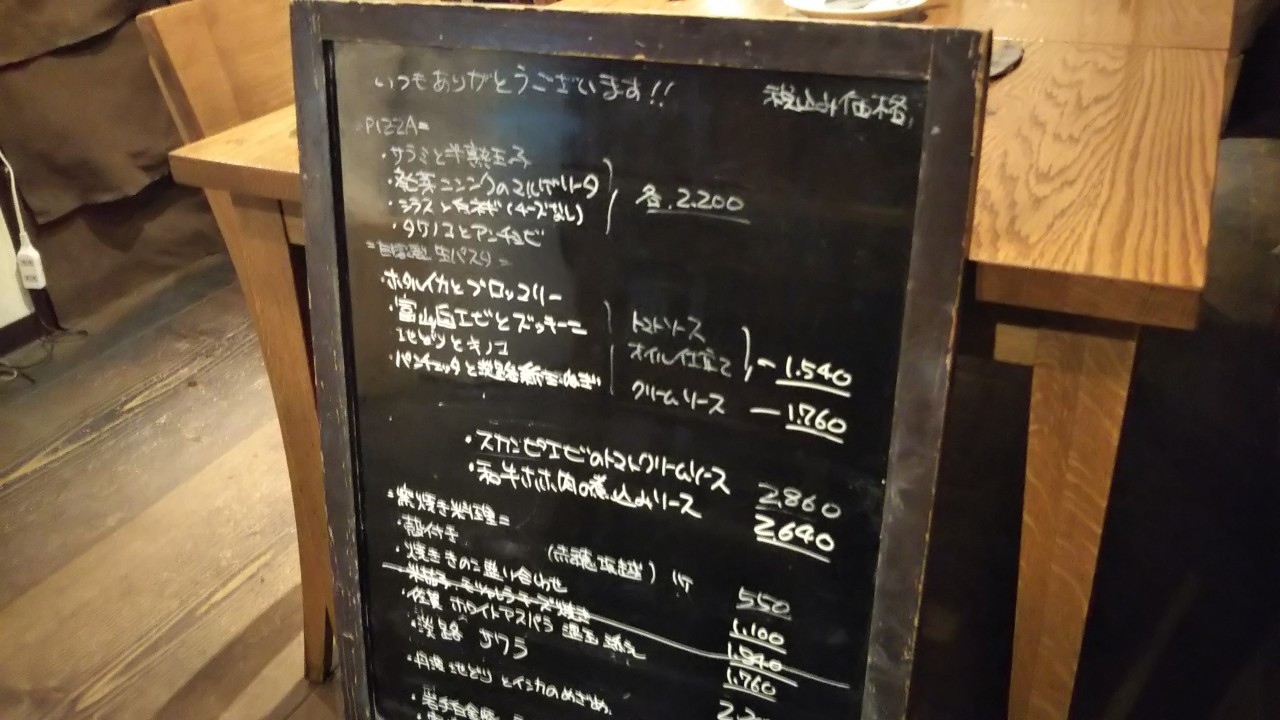 いつもありがとうございます!! 税込み価格
=PIZZA=
・サラミと半熟玉子
・発芽ニンニクのマルゲリータ
・シラスと白ネギ(チーズなし)
・タケノコとアンチョビ
各.2.200
=自家製 生パスタ=
・ホタルイカとブロッコリー
・富山白エビとズッキーニ
地どりとキノコ
・パンチェッタと淡路新玉ねぎ
トマトソース
オイル仕立て
-1.540
クリームソース -1.760
・スカンピエビのトマトクリームソース 2.860
・和牛ホホ肉の煮込みソース 2.640
=窯焼き料理=
・殻付き (兵庫坂越) 1ケ 550
・焼ききのこ盛り合わせ 1.100
・米茄子 モッツァレラチーズ焼き 1.540
・佐賀 ホワイトアスパラ 温玉添え 1.760
・淡路 サワラ
・丹波 地どり とインカのめざめ